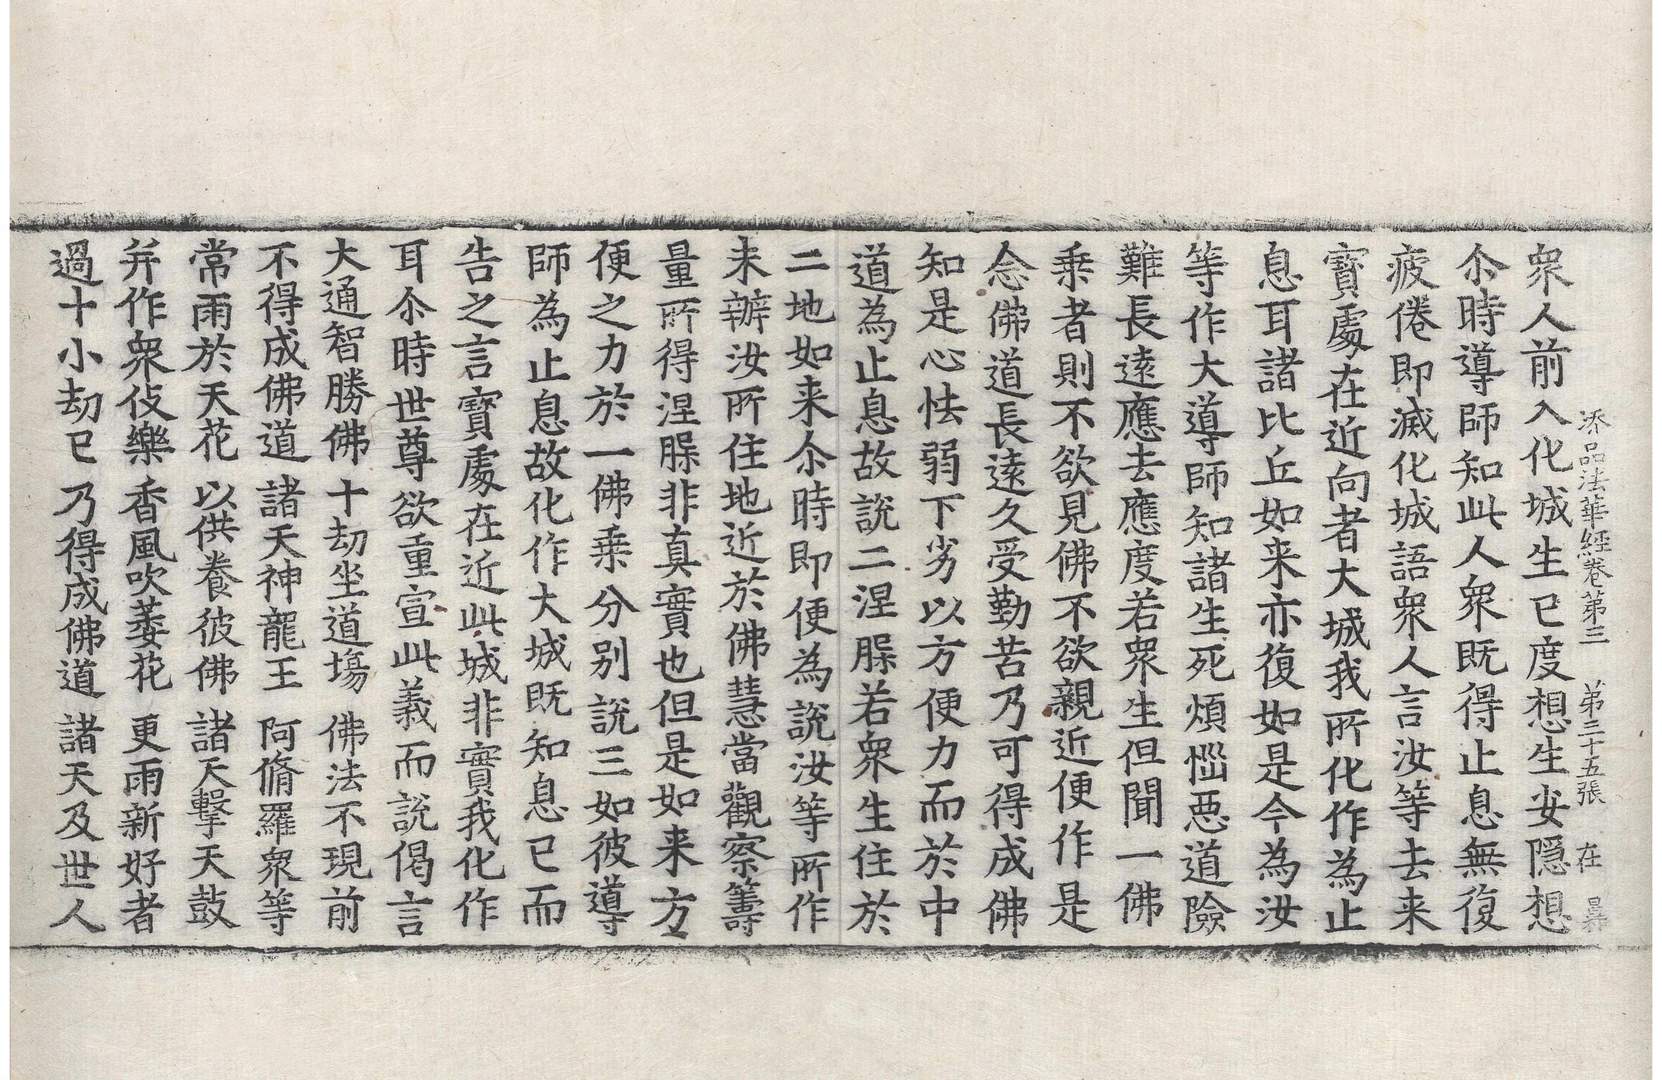 添品法華經卷第三　第三十五張　在
衆人前入化城生已度想生安隱想
尒時導師知此人衆既得止息無復
疲倦即滅化城語衆人言汝等去来
寶處在近向者大城我所化作為止
息耳諸比丘如来亦復如是今為汝
等作大導師知諸生死煩惱惡道險
難長遠應去應度若衆生但聞一佛
乗者則不欲見佛不欲親近便作是
念佛道長遠久受勤苦乃可得成佛
知是心怯弱下劣以方便力而於中
道為止息故說二涅槃若衆生住於
二地如来尒時即便為說汝等所作
未辦汝所住地近於佛慧當觀察籌
量所得涅槃非真實也但是如来方
便之力於一佛乗分别說三如彼導
師為止息故化作大城既知息已而
告之言寶處在近此城非實我化作
耳尒時世尊欲重宣此義而說偈言
大通智勝佛　十劫坐道塲　佛法不現前
不得成佛道　諸天神龍王　阿脩羅衆等
常雨於天花　以供養彼佛　諸天擊天鼓
并作衆伎樂　香風吹萎花　更雨新好者
過十小劫已　乃得成佛道　諸天及世人